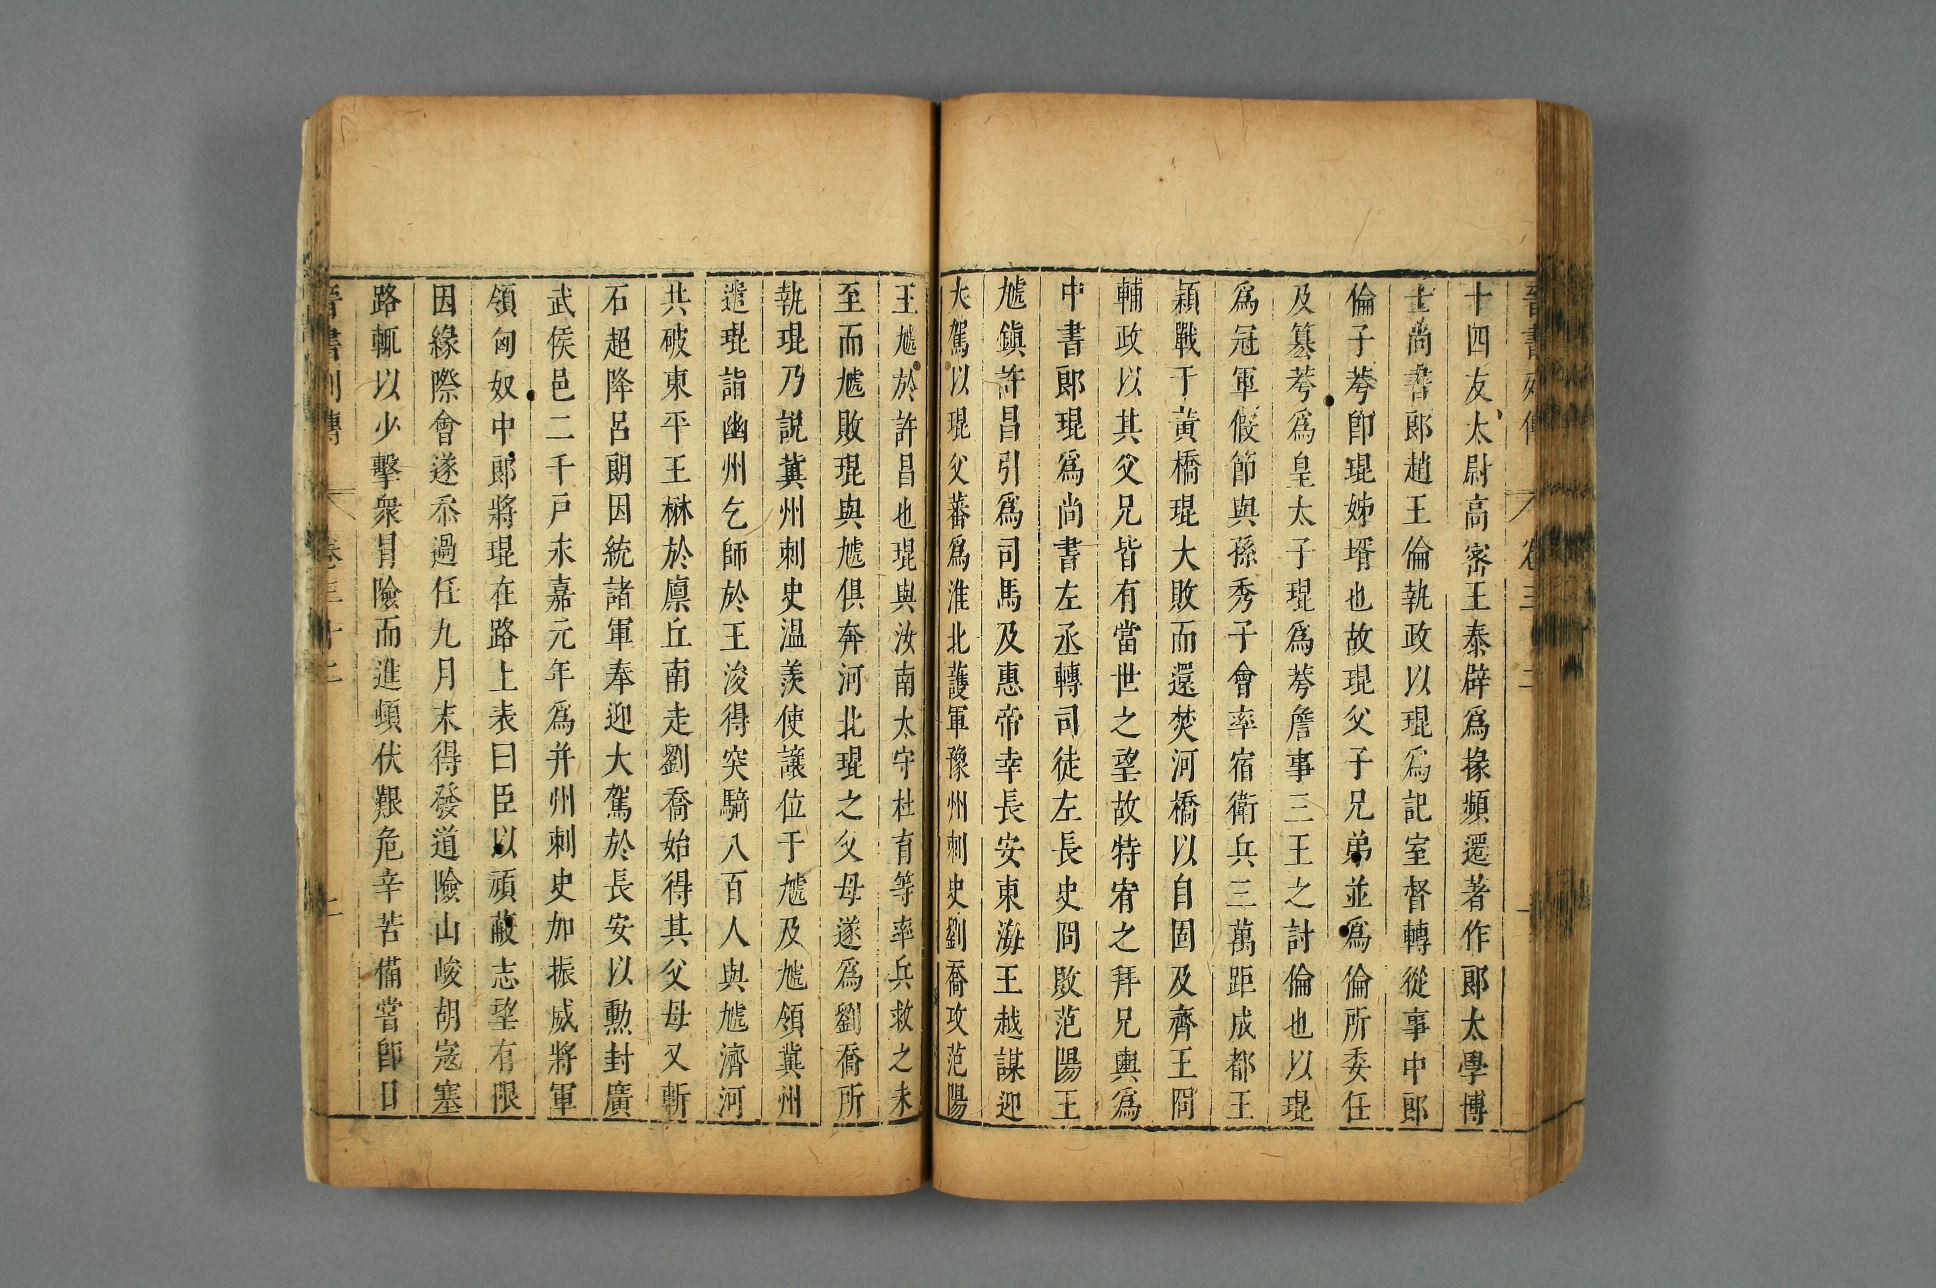 十四友太尉高密王泰辟爲掾頻遷著作郎太學博
士尚書郎趙王倫執政以琨爲記室督轉從事中郎
倫子荂卽琨姊壻也故琨父子兄弟並爲倫所委任
及簒荂爲皇太子琨爲荂詹事三王之討倫也以琨
爲冠軍假節與孫秀子會率宿衛兵三萬距成都王
穎戰于黃橋琨大敗而還焚河橋以自固及齊王冏
輔政以其父兄皆有當世之望故特宥之拜兄輿爲
中書郎琨爲尚書左丞轉司徒左長史冏敗范陽王
虓鎮許昌引爲司馬及惠帝幸長安東海王越謀迎
大駕以琨父蕃爲淮北護軍豫州刺史劉喬攻范陽
王虓於許昌也琨與汝南太守杜育等率兵救之未
至而虓敗琨與虓俱奔河北琨之父母遂爲劉喬所
執琨乃説冀州刺史温羨使讓位于虓及虓領冀州
遣琨詣幽州乞師於王浚得突騎八百人與虓濟河
共破東平王楙於廩丘南走劉喬始得其父母又斬
石超降呂朗因統諸軍奉迎大駕於長安以勲封廣
武侯邑二千戸永嘉元年爲并州刺史加振威將軍
領匈奴中郎將琨在路上表曰臣以頑蔽志望有限
因緣際會遂忝過任九月末得發道險山峻胡寇塞
路輒以少擊衆冒險而進頓伏艱危辛苦備嘗卽日
晉書列傳 卷三十二